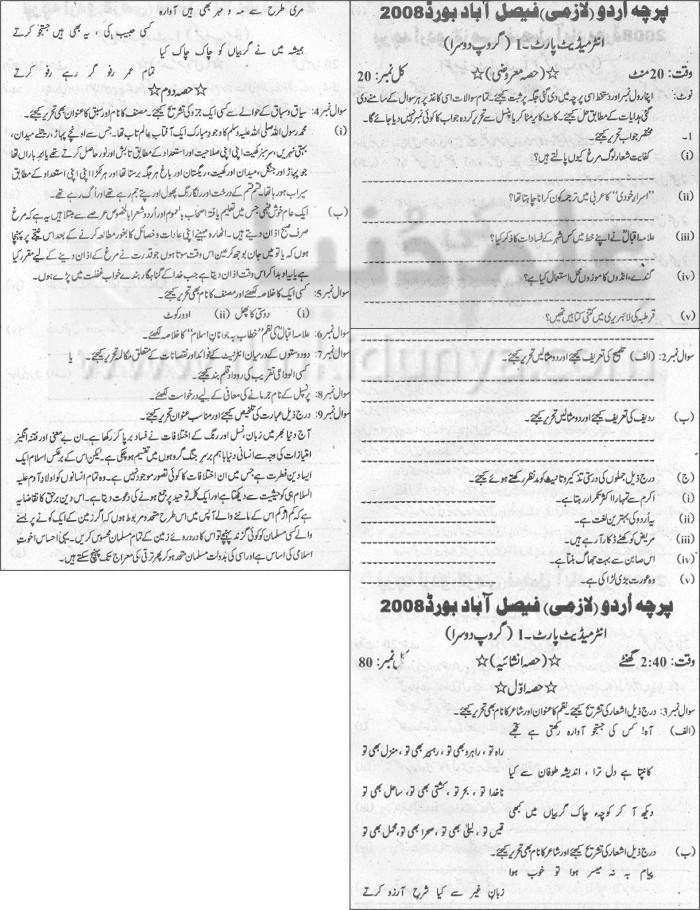 پرچہ اُردو (لازمی) فیصل آباد بورڈ 2008
انٹرمیڈیٹ پارٹ۔ I (گروپ دوسرا)
وقت: 20 منٹ ☆(حصہ معروضی)☆ کل نمبر: 20
نوٹ: اپنا رول نمبر اور دستخط اسی پرچہ پر دی گئی جگہ پر ثبت کیجئے۔ تمام سوالات اسی کاغذ پر ہر سوال کے سامنے دی
گئی ہدایات کے مطابق حل کیجئے۔ کاٹ کر یا مٹا کر یا پنسل سے تحریر کردہ جواب کا کوئی نمبر نہیں دیا جائے گا۔
1۔ مختصر جواب تحریر کیجئے۔
(i) کفایت شعار لوگ مرغ کیوں پالتے ہیں؟
(ii) "اسرار خودی" کا عربی میں ترجمہ کون کرانا چاہتا تھا؟
(iii) علامہ اقبالؒ نے اپنے خط میں کس شہر کے فسادات کا ذکر کیا؟
(iv) گندے انڈوں کا موزوں محل استعمال کیا ہے؟
(v) قرطبہ کی لائبریری میں کتنی کتابیں تھیں؟
سوال نمبر 2: (الف) تلمیح کی تعریف کیجئے اور دو مثالیں تحریر کیجئے۔
(ب) ردیف کی تعریف کیجئے اور دو مثالیں تحریر کیجئے۔
(ج) درج ذیل جملوں کی درستی تذکیر و تانیث کو مدنظر رکھتے ہوئے کیجئے۔
(i) اکرم سے تمہارا اکثر تکرار رہتا ہے۔
(ii) یہ اُردو کی بہترین لغت ہے۔
(iii) مریض کو کھٹے ڈکار آ رہے ہیں۔
(iv) اس صابن سے بہت جھاگ بنتا ہے۔
(v) وہ عورت بڑی لڑاکی ہے۔
پرچہ اُردو (لازمی) فیصل آباد بورڈ 2008
انٹرمیڈیٹ پارٹ۔ I (گروپ دوسرا)
وقت: 2:40 گھنٹے ☆(حصہ انشائیہ)☆ کل نمبر: 80
☆ حصہ اوّل ☆
سوال نمبر 3: درج ذیل اشعار کی تشریح کیجئے۔ نظم کا عنوان اور شاعر کا نام بھی تحریر کیجئے۔
(الف) آہ! کس کی جستجو آوارہ رکھتی ہے تجھے
راہ تو، راہرو بھی تو، رہبر بھی تو، منزل بھی تو
کانپتا ہے دل ترا، اندیشہ طوفان سے کیا
ناخدا تو، بحر تو، کشتی بھی تو، ساحل بھی تو
دیکھ آ کر کوچہء چاک گریباں میں کبھی
قیس تو، لیلیٰ بھی تو، صحرا بھی تو، محمل بھی تو
(ب) درج ذیل اشعار کی تشریح کیجئے اور شاعر کا نام بھی تحریر کیجئے۔
پیام بر نہ میسر ہوا تو خوب ہوا
زبانِ غیر سے کیا شرح آرزو کرتے
مری طرح سے مہ و مہر بھی ہیں آوارہ
کسی حبیب کی، یہ بھی ہیں جستجو کرتے
ہمیشہ میں نے گریباں کو چاک چاک کیا
تمام عمر رفو گر رہے رفو کرتے
☆ حصہ دوم ☆
سوال نمبر 4: سیاق و سباق کے حوالے سے کسی ایک جزو کی تشریح کیجئے۔ مصنف کا نام اور سبق کا عنوان بھی تحریر کیجئے۔
(i) محمد رسول اللہ صلی اللہ علیہ وسلم کا وجودِ مبارک ایک آفتاب عالم تاب تھا۔ جس سے اونچے پہاڑ، ریتلے میدان،
بہتی نہریں، سرسبز کھیت اپنی اپنی صلاحیت اور استعداد کے مطابق تابش اور نور حاصل کرتے تھے یا ابرِ باراں تھا
جو پہاڑ اور جنگل، میدان اور کھیت، ریگستان اور باغ ہر جگہ برستا تھا اور ہر ٹکڑا اپنی اپنی استعداد کے مطابق
سیراب ہو رہا تھا۔ قسم قسم کے درخت اور رنگا رنگ پھول اور پتے جم رہے تھے اور اُگ رہے تھے۔
(ب) ایک عام خوش فہمی جس میں تعلیم یافتہ اصحاب بالعموم اور اُردو شعرا بالخصوص عرصے سے مبتلا ہیں یہ ہے کہ مرغ
صرف صبح اذان دیتے ہیں۔ اٹھارہ مہینے اپنی عادات و خصائل کا بغور مطالعہ کرنے کے بعد اس نتیجے پر پہنچا
ہوں کہ یا تو میں جان بوجھ کر عین اس وقت سوتا ہوں جو قدرت نے مرغ کے اذان دینے کے لیے مقرر کیا
ہے یا یہ ادبدا کر اس وقت اذان دیتا ہے جب خدا کے گناہگار بندے خواب غفلت میں پڑے ہوں۔
سوال نمبر 5: کسی ایک کا خلاصہ لکھئے اور مصنف کا نام بھی تحریر کیجئے۔
(i) دوستی کا پھل (ii) اوور کوٹ
سوال نمبر 6: علامہ اقبالؒ کی نظم "خطاب بہ جوانانِ اسلام" کا خلاصہ لکھئے۔
سوال نمبر 7: دو دوستوں کے درمیان انٹرنیٹ کے فوائد اور نقصانات کے متعلق مکالمہ تحریر کیجئے۔ یا
کسی الوداعی تقریب کی روداد قلم بند کیجئے۔
سوال نمبر 8: پرنسپل کے نام جرمانے کی معافی کے لیے درخواست لکھئے۔
سوال نمبر 9: درج ذیل عبارت کی تلخیص کیجئے اور مناسب عنوان تحریر کیجئے۔
آج دنیا بھر میں زبان، نسل اور رنگ کے اختلافات نے فساد برپا کر رکھا ہے۔ ان بے معنی اور فتنہ انگیز
امتیازات کی وجہ سے انسانی دنیا باہم برسرِ جنگ گروہوں میں تقسیم ہو چکی ہے۔ لیکن اس کے برعکس اسلام ایک
ایسا دین فطرت ہے جس میں ان اختلافات کا کوئی تصور موجود نہیں ہے۔ وہ تمام انسانوں کو اولادِ آدم علیہ
السلام ہی کی حیثیت سے دیکھتا ہے اور ایک کلمہء توحید پر جمع ہونے کی دعوت دیتا ہے۔ اس دینِ برحق کا تقاضا یہ
ہے کہ کم از کم اس کے ماننے والے آپس میں اس طرح متحد و مربوط ہوں کہ اگر زمین کے ایک کونے پر بسنے
والے کسی مسلمان کو کوئی گزند پہنچے تو اس کا درد روئے زمین کے تمام مسلمان محسوس کریں۔ یہی احساس اخوت
اسلامی کی اساس ہے اور اسی کی بدولت مسلمان متحد ہو کر پھر ترقی کی معراج تک پہنچ سکتے ہیں۔